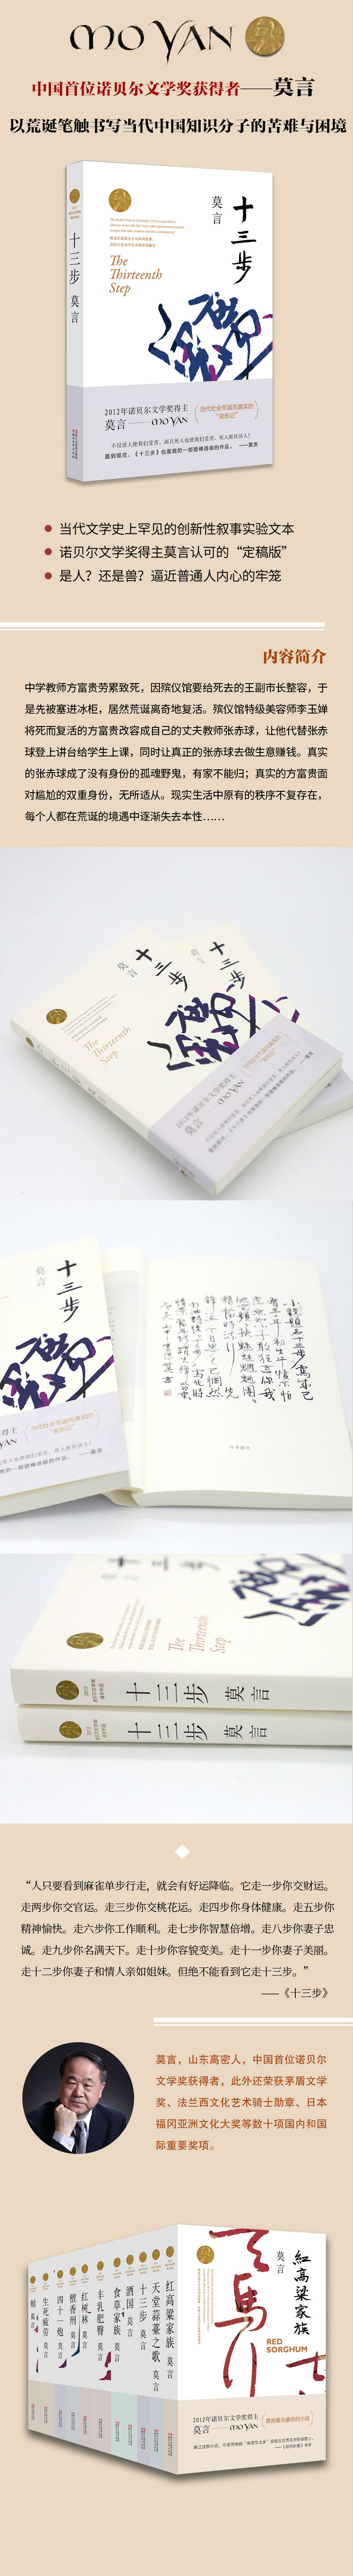 MO YAN
中国首位诺贝尔文学奖获得者——莫言
以荒诞笔触书写当代中国知识分子的苦难与困境
十三步
莫言
莫言
十三步
The
Thirteenth
Step
2012年诺贝尔文学奖得主
莫言——MO YAN
当代社会荒诞而真实的
“变形记”
不仅活人使我们受苦，而且死人也使我们受苦。死人抓住活人！
直到现在，《十三步》也是我的一部登峰造极的作品。 ——莫言
当代文学史上罕见的创新性叙事实验文本
诺贝尔文学奖得主莫言认可的“定稿版”
是人？还是兽？逼近普通人内心的牢笼
内容简介
中学教师方富贵劳累致死，因殡仪馆要给死去的王副市长整容，于
是先被塞进冰柜，居然荒诞离奇地复活。殡仪馆特级美容师李玉婵
将死而复活的方富贵改容成自己的丈夫教师张赤球，让他代替张赤
球登上讲台给学生上课，同时让真正的张赤球去做生意赚钱。真实
的张赤球成了没有身份的孤魂野鬼，有家不能归；真实的方富贵面
对尴尬的双重身份，无所适从。现实生活中原有的秩序不复存在，
每个人都在荒诞的境遇中逐渐失去本性……
莫言
十三步
莫言
十三步
The
Thirteenth
Step
2012年诺贝尔文学奖得主
莫言
十三步
当代社会荒诞而真实的
“变形记”
The
Thirteenth
Step
十三步 莫言
十三步 莫言
“人只要看到麻雀单步行走，就会有好运降临。它走一步你交财运。
走两步你交官运。走三步你交桃花运。走四步你身体健康。走五步你
精神愉快。走六步你工作顺利。走七步你智慧倍增。走八步你妻子忠
诚。走九步你名满天下。走十步你容貌变美。走十一步你妻子美丽。
走十二步你妻子和情人亲如姐妹。但绝不能看到它走十三步。”
——《十三步》
莫言，山东高密人，中国首位诺贝尔
文学奖获得者，此外还荣获茅盾文学
奖、法兰西文化艺术骑士勋章、日本
福冈亚洲文化大奖等数十项国内和国
际重要奖项。
蛙 莫言
生死疲劳 莫言
四十一炮 莫言
檀香刑 莫言
红树林 莫言
丰乳肥臀 莫言
食草家族 莫言
酒国 莫言
十三步 莫言
天堂蒜薹之歌 莫言
红高粱家族 莫言
莫言
红高粱家族
RED
SORGHUM
2012年诺贝尔文学奖得主
莫言——MO YAN
莫言最负盛名的小说